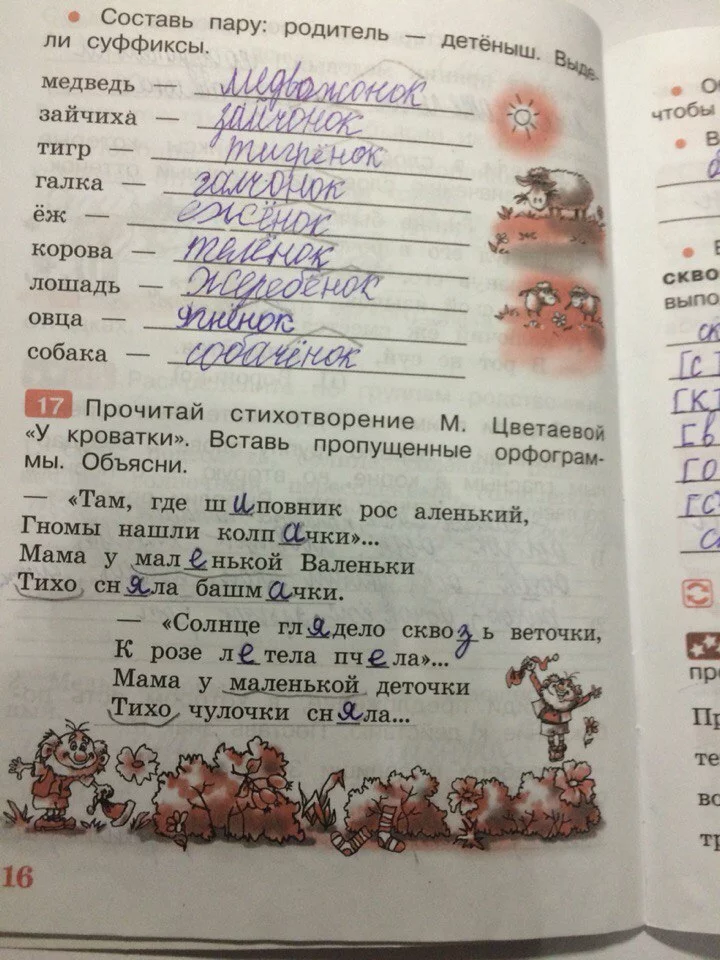 • Составь пару: родитель — детёныш. Выде-
ли суффиксы.
медведь — медвожонок
зайчиха — зайчонок
тигр — тигрёнок
галка — галчонок
ёж — ежёнок
корова — телёнок
лошадь — жеребёнок
овца — ягнёнок
собака — собачёнок
17 Прочитай стихотворение М. Цветаевой
«У кроватки». Вставь пропущенные орфограм-
мы. Объясни.
— «Там, где шиповник рос аленький,
Гномы нашли колпачки»...
Мама у маленькой Валеньки
Тихо сняла башмачки.
— «Солнце глядело сквозь веточки,
К розе летела пчела»...
Мама у маленькой деточки
Тихо чулочки сняла...
16
• Об
чтобы
• В
• В
скво
выпо
ск
[с]
[к]
[в
[о
[с
с
про
Пр
те
вс
тр